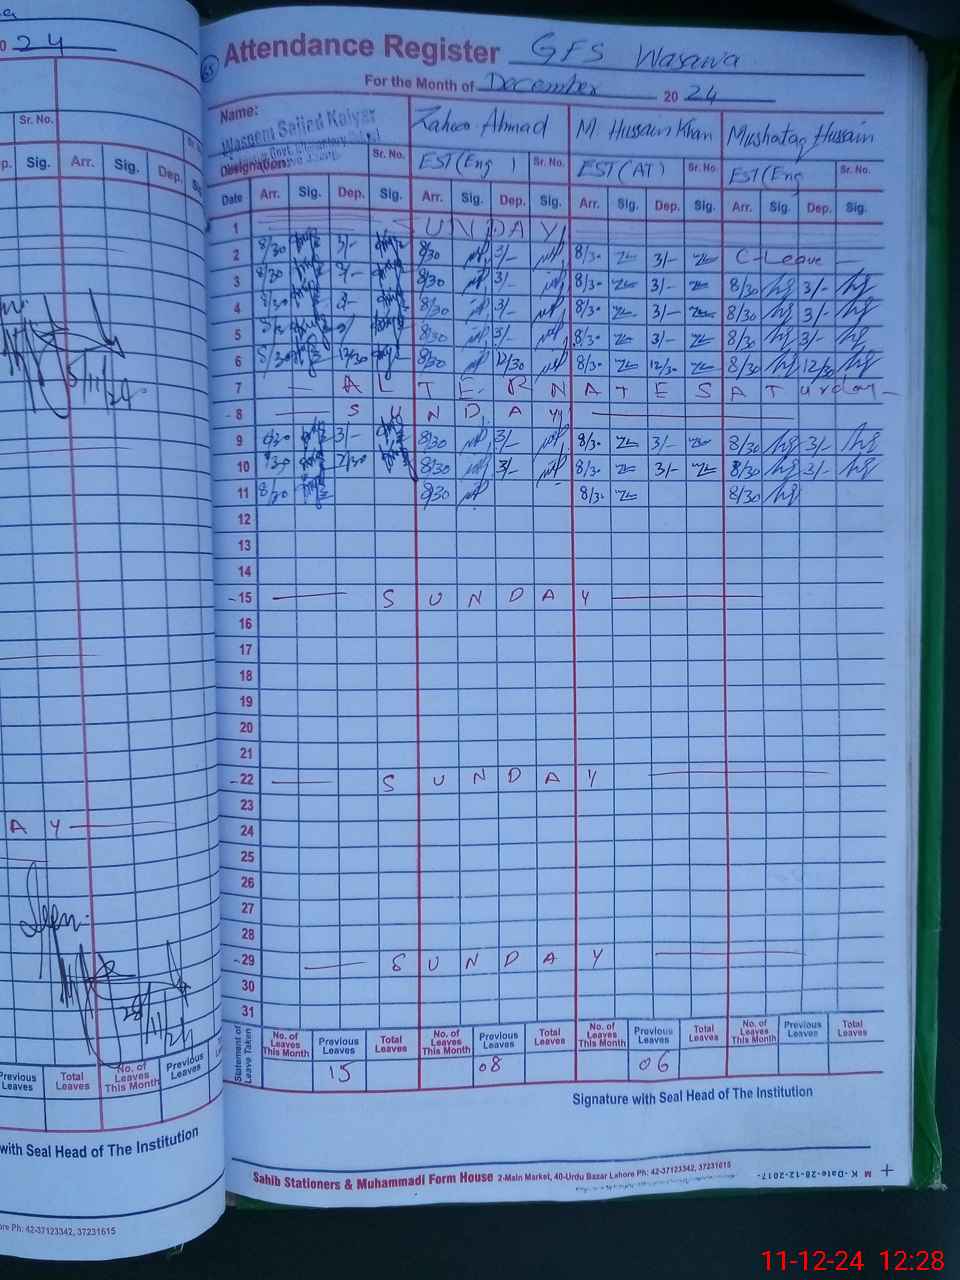 20 24
Sr. No.
Sig. Arr. Sig. Dep.
5/11/24
A Y
28/11/24
Previous Leaves Total Leaves No. of Leaves This Month Previous Leaves
with Seal Head of The Institution
Ph: 42-37123342, 37231615
Attendance Register GFS Wasawa
For the Month of December 20 24
Name: Waseem Sajjad Kaiyar Zaheer Ahmad M Hussain Khan Mushataq Hussain
Designation: Sr. No. EST (Eng ) Sr. No. EST (AT) Sr. No. EST (Eng Sr. No.
Date Arr. Sig. Dep. Sig. Arr. Sig. Dep. Sig. Arr. Sig. Dep. Sig. Arr. Sig. Dep. Sig.
1 S U N D A Y
2 8/30 3/- 8/30 3/- 8/30 3/- C-Leave
3 8/30 3/- 8/30 3/- 8/30 3/- 8/30 3/-
4 8/30 3/- 8/30 3/- 8/30 3/- 8/30 3/-
5 8/30 3/- 8/30 3/- 8/30 3/- 8/30 3/-
6 8/30 12/30 8/30 12/30 8/30 12/30 8/30 12/30
7 A L T E R N A T E S A T u r d a y
8 S U N D A Y
9 8/30 3/- 8/30 3/- 8/30 3/- 8/30 3/-
10 8/30 8/30 3/- 8/30 3/- 8/30 3/-
11 8/30 8/30 8/30 8/30
12
13
14
15 S U N D A Y
16
17
18
19
20
21
22 S U N D A Y
23
24
25
26
27
28
29 S U N D A Y
30
31
Statement of Leave Taken No. of Leaves This Month Previous Leaves Total Leaves No. of Leaves This Month Previous Leaves Total Leaves No. of Leaves This Month Previous Leaves Total Leaves No. of Leaves This Month Previous Leaves Total Leaves
15 08 06
Signature with Seal Head of The Institution
Sahib Stationers & Muhammadi Form House 2-Main Market, 40-Urdu Bazar Lahore Ph: 42-37123342, 37231615
M K-Date-28-12-2017-
11-12-24 12:28